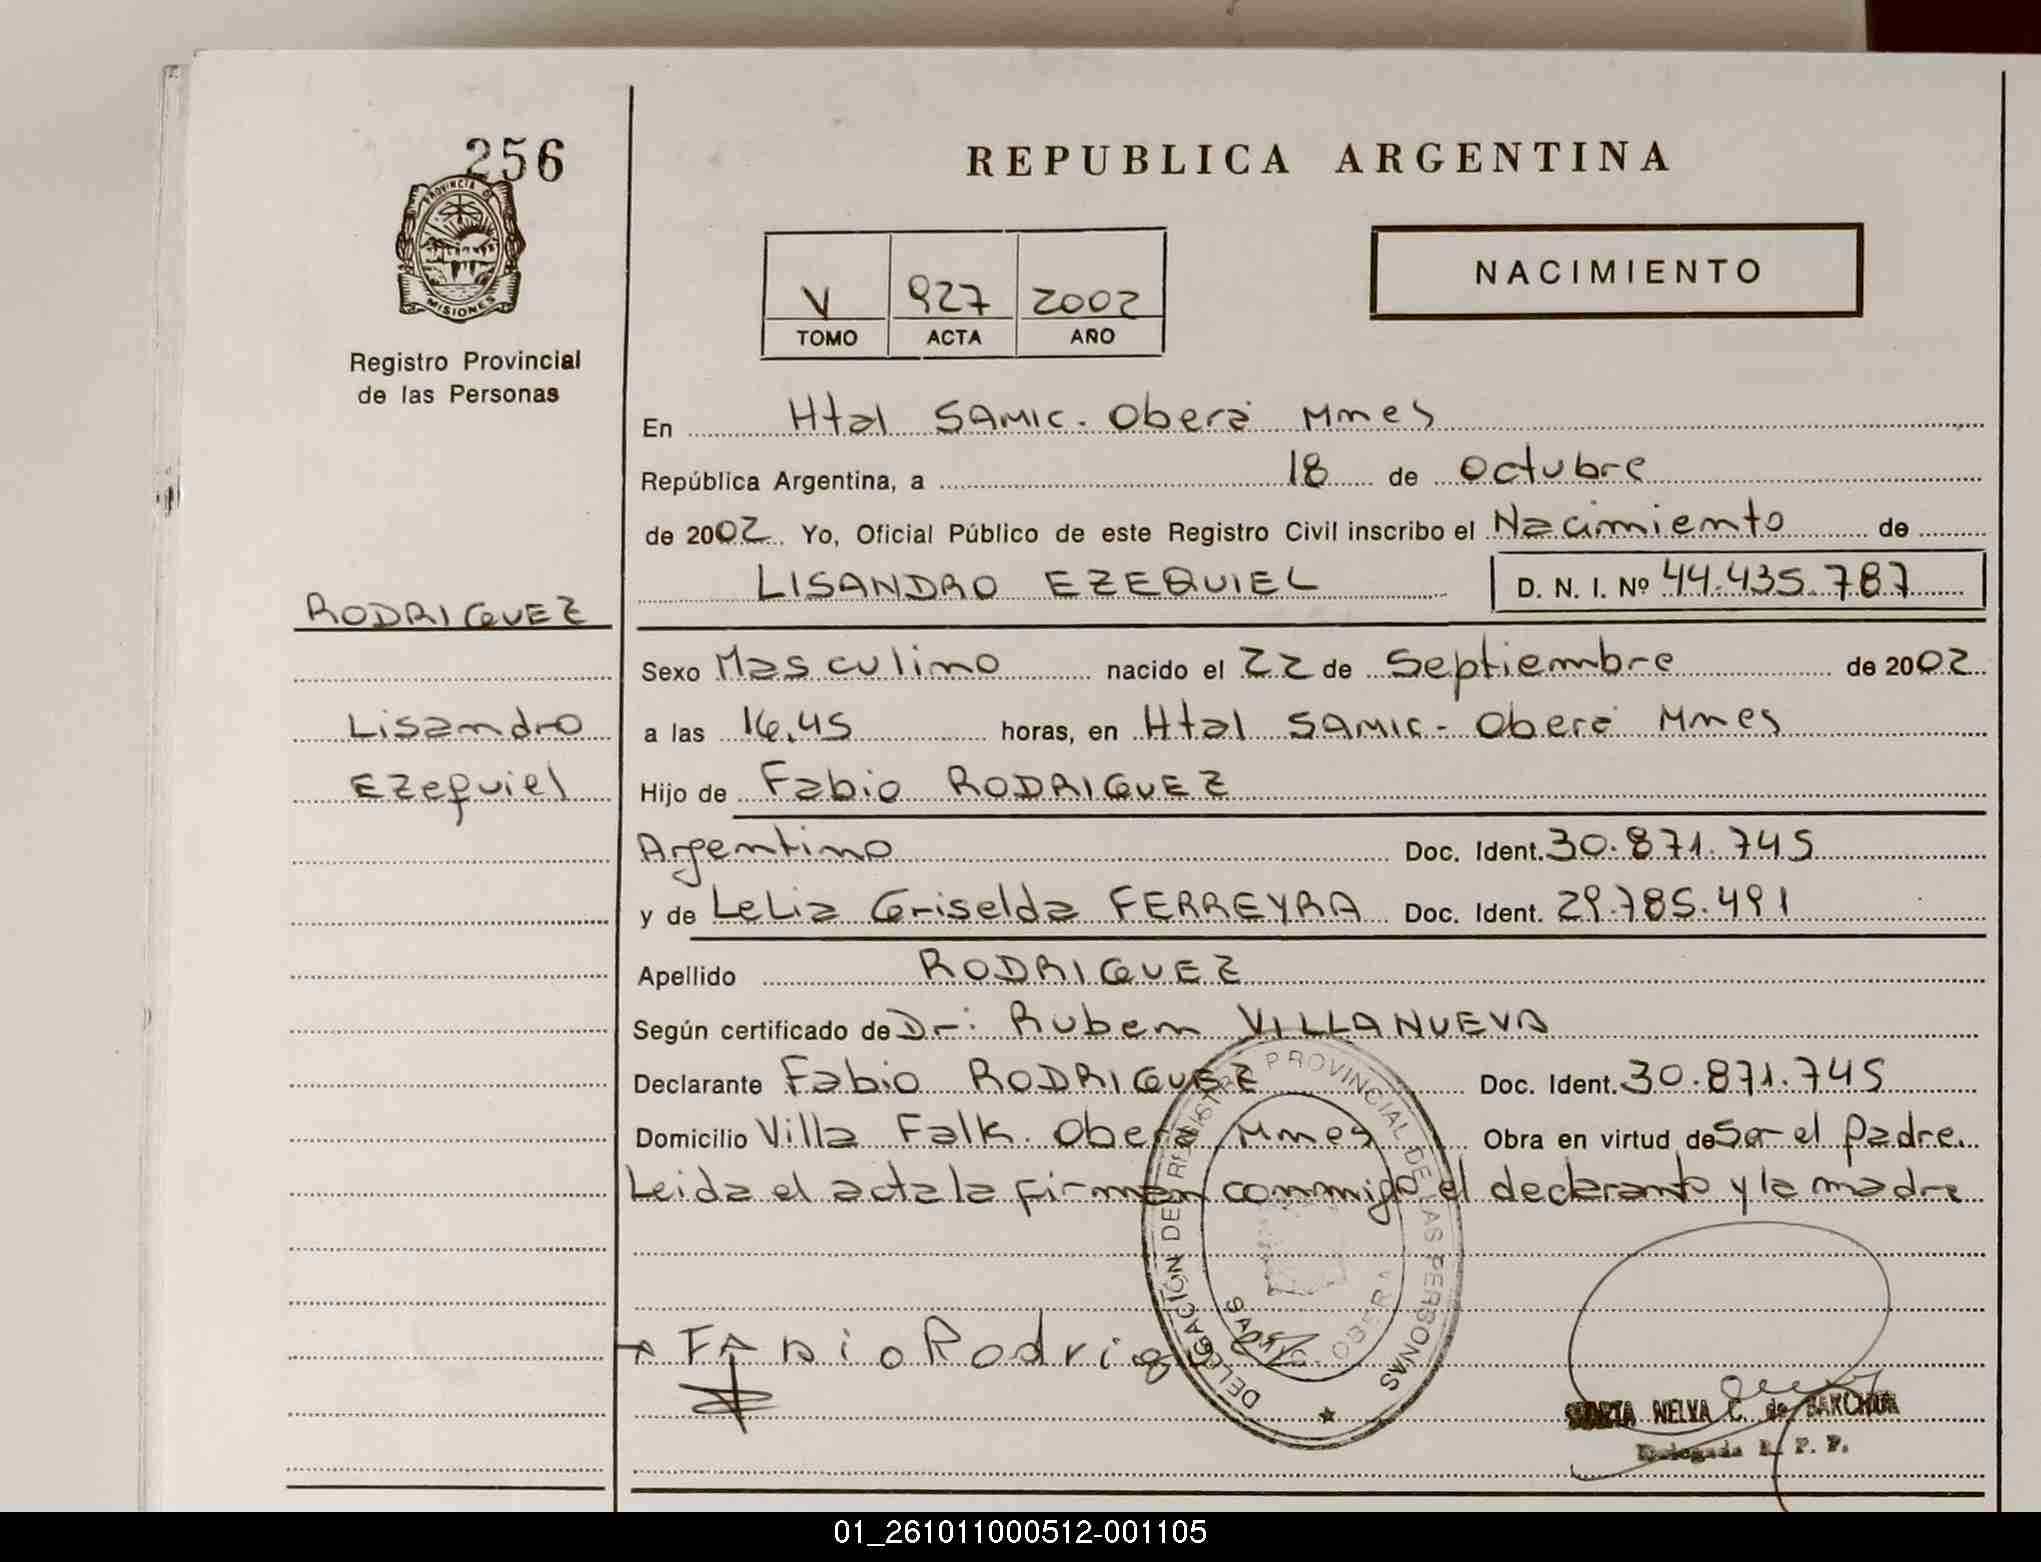 256
PROVINCIA DE
MISIONES
Registro Provincial
de las Personas
RODRIGUEZ
Lisandro
Ezequiel
REPUBLICA ARGENTINA
V 927 2002
TOMO ACTA AÑO
NACIMIENTO
En Htal SAMIC. Oberá Mnes
República Argentina, a 18 de octubre
de 2002. Yo, Oficial Público de este Registro Civil inscribo el Nacimiento de
LISANDRO EZEQUIEL D. N. I. Nº 44.435.787
Sexo Masculino nacido el 22 de Septiembre de 2002
a las 16.45 horas, en Htal SAMIC - Oberá Mnes
Hijo de Fabio RODRIGUEZ
Argentino Doc. Ident. 30.871.745
y de LeLia Griselda FERREYRA Doc. Ident. 29.785.491
Apellido RODRIGUEZ
Según certificado de Dr: Ruben VILLANUEVA
Declarante Fabio RODRIGUEZ Doc. Ident. 30.871.745
Domicilio Villa Falk. Oberá Mnes Obra en virtud de Ser el padre.
Leida el acta la firman conmigo el declarante y la madre
DELEGACIÓN DEL REGISTRO PROVINCIAL DE LAS PERSONAS
OBERA
FABio Rodrig
NELVA C. de
Delegada R. P. P.
01_261011000512-001105